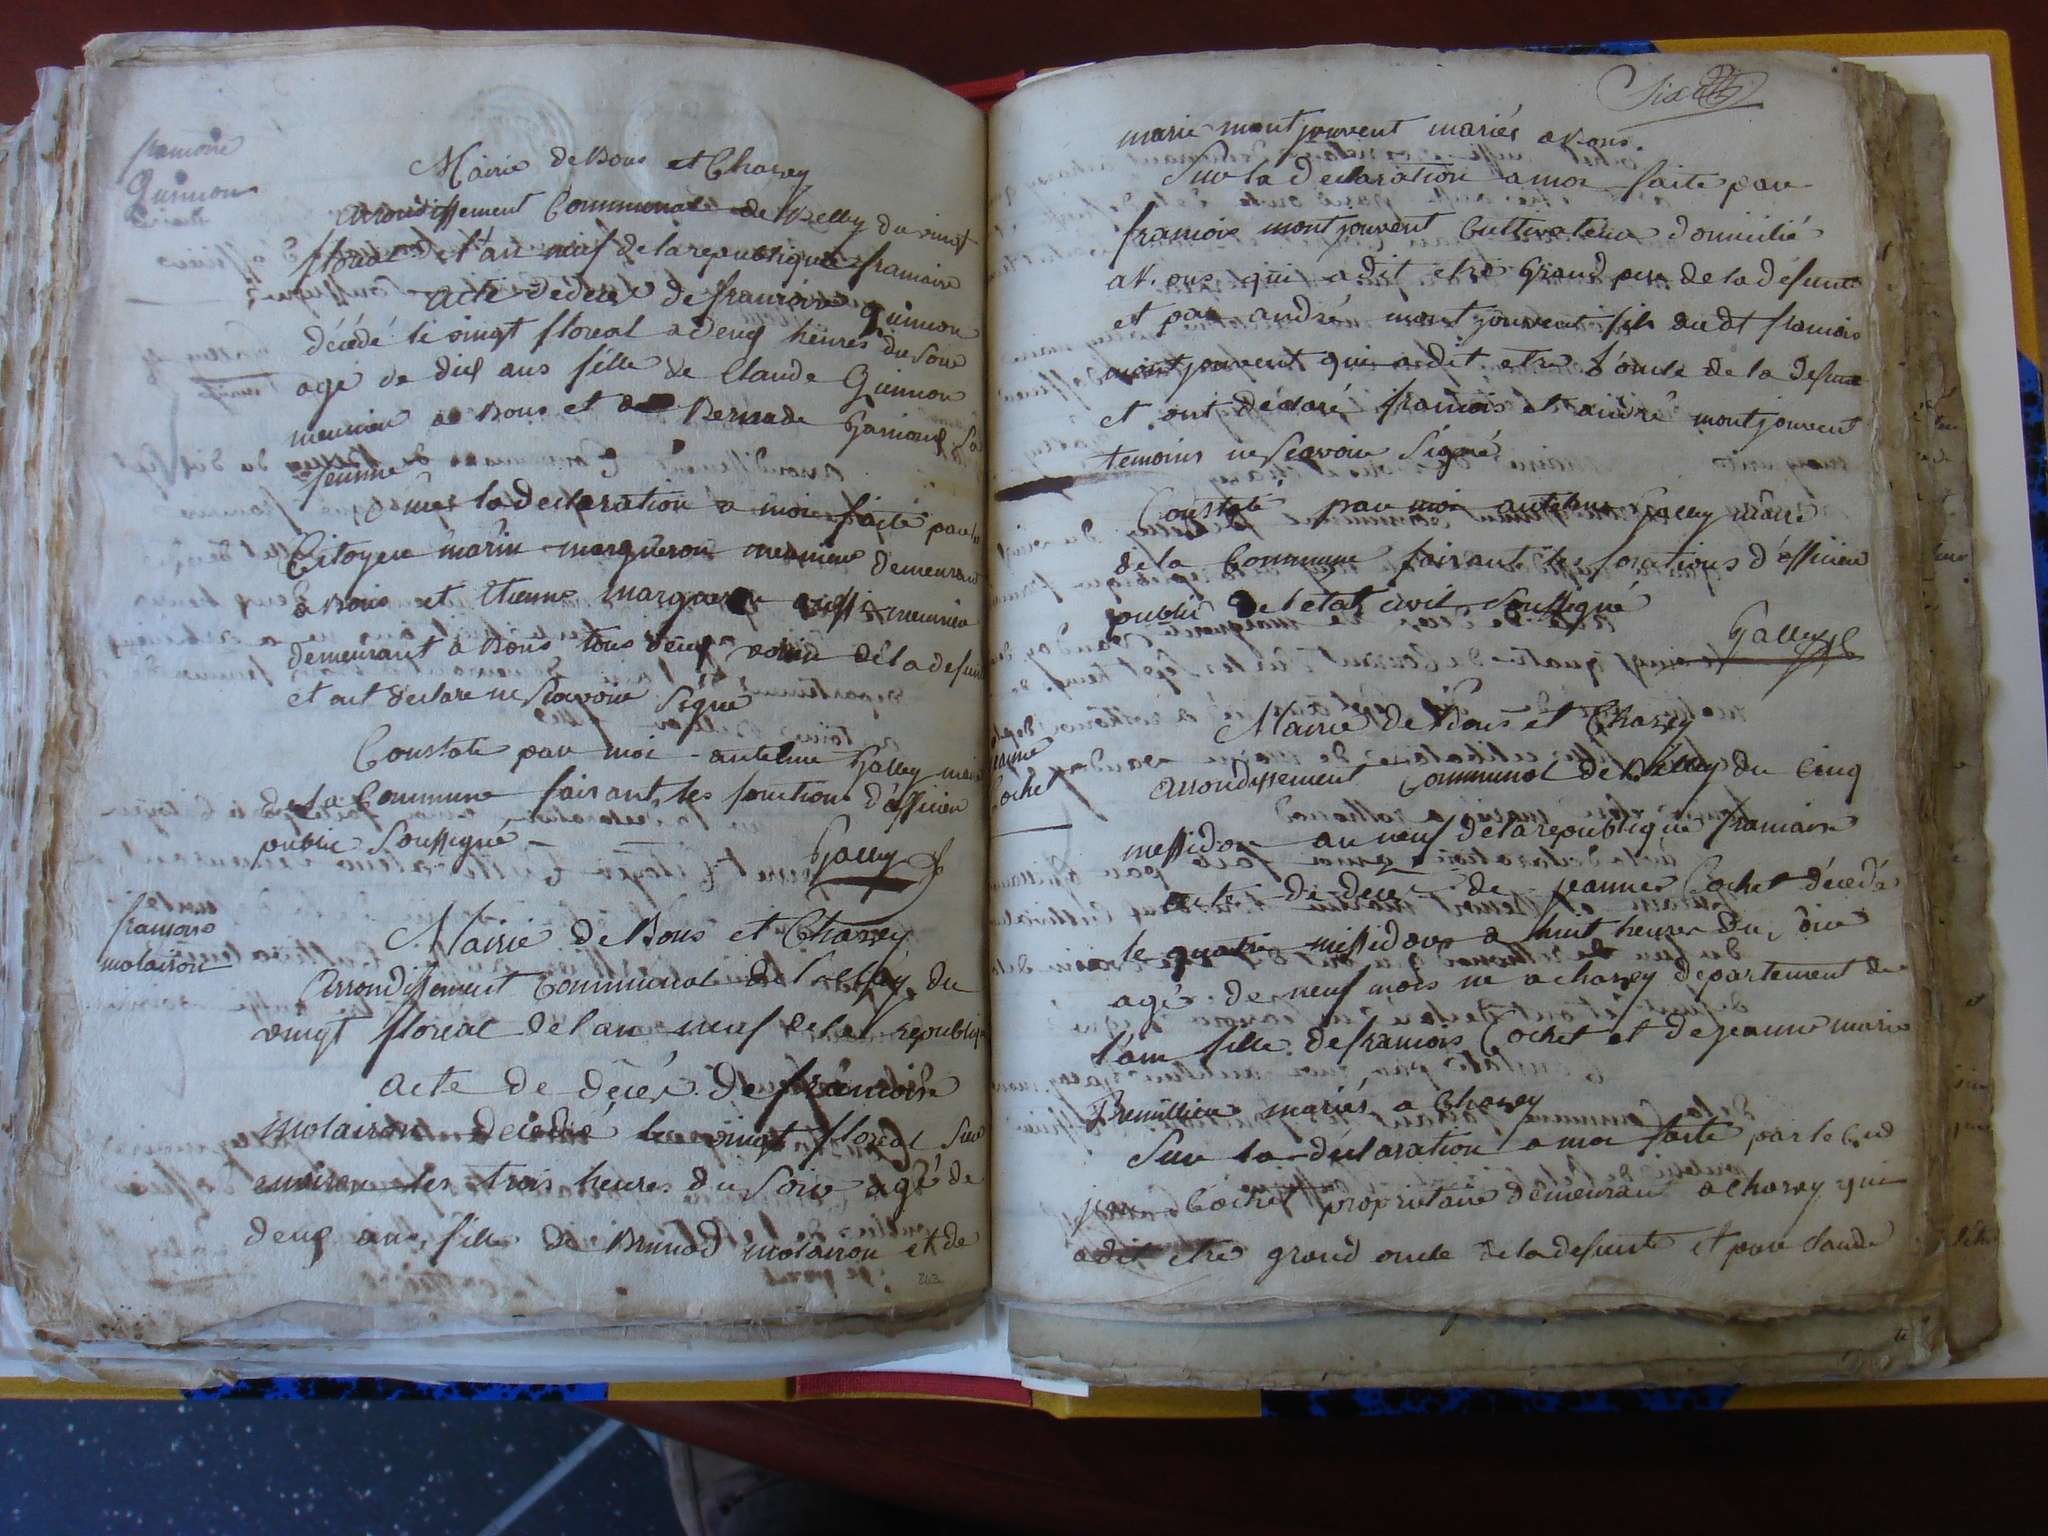 francoise
Guinion
Mairie de Bons et Chazey
arrondissement Communal de Belley du vingt
floreal de l'an neuf de la republique francaise
acte de deces de francoise Guinion
décédé le vingt floreal a deux heures du soir
age de dix ans fille de Claude Guinion
meunier a Bons et de Bernade
femme
sur la declaration a moi faite par le
Citoyen marin margueron meunier demeurant
a Bons et Etienne margueron aussi meunier
demeurant a Bons tous deux voisin de la defunte
et ont declare ne scavoir signé
Constate par moi antelme Galley maire
de la Commune faisant les fonctions d'officier
public soussigné
Galley
francoise
molairon
Mairie de Bons et Chazey
arrondissement Communal de Belley du
vingt floreal de l'an neuf de la republique
acte de décés de francoise
molairon décédé le vingt floreal sur
environ les trois heures du soir agé de
deux ans, fille de Bernad molairon et de
263
Six
marie montjouvent mariés a Bons.
Sur la declaration a moi faite par
francois montjouvent Cultivateur domicilié
a Bons qui a dit etre Grand pere de la défunte
et par andré montjouvent fils dudt francois
montjouvent qui a dit etre l'oncle de la defunte
et ont déclaré francois et andré montjouvent
temoins ne scavoir signé
Constaté par moi antelme Galley maire
de la Commune faisant les fonctions d'officier
public de l'etat civil soussigné
Galley
jeanne
Cochet
Mairie de Bons et Chazey
arrondissement Communal de Belley du Cinq
messidor an neuf de la republique francaise
acte de deces de jeanne Cochet décédé
le quatre messidor a huit heures du soir
agé de neuf mois ne a chazey departement de
l'ain fille de francois Cochet et de jeanne marie
mariés a Chazey
Sur la déclaration a moi faite par le
jean Cochet proprietaire demeurant a Chazey qui
a dit etre grand oncle de la defunte et par Claude